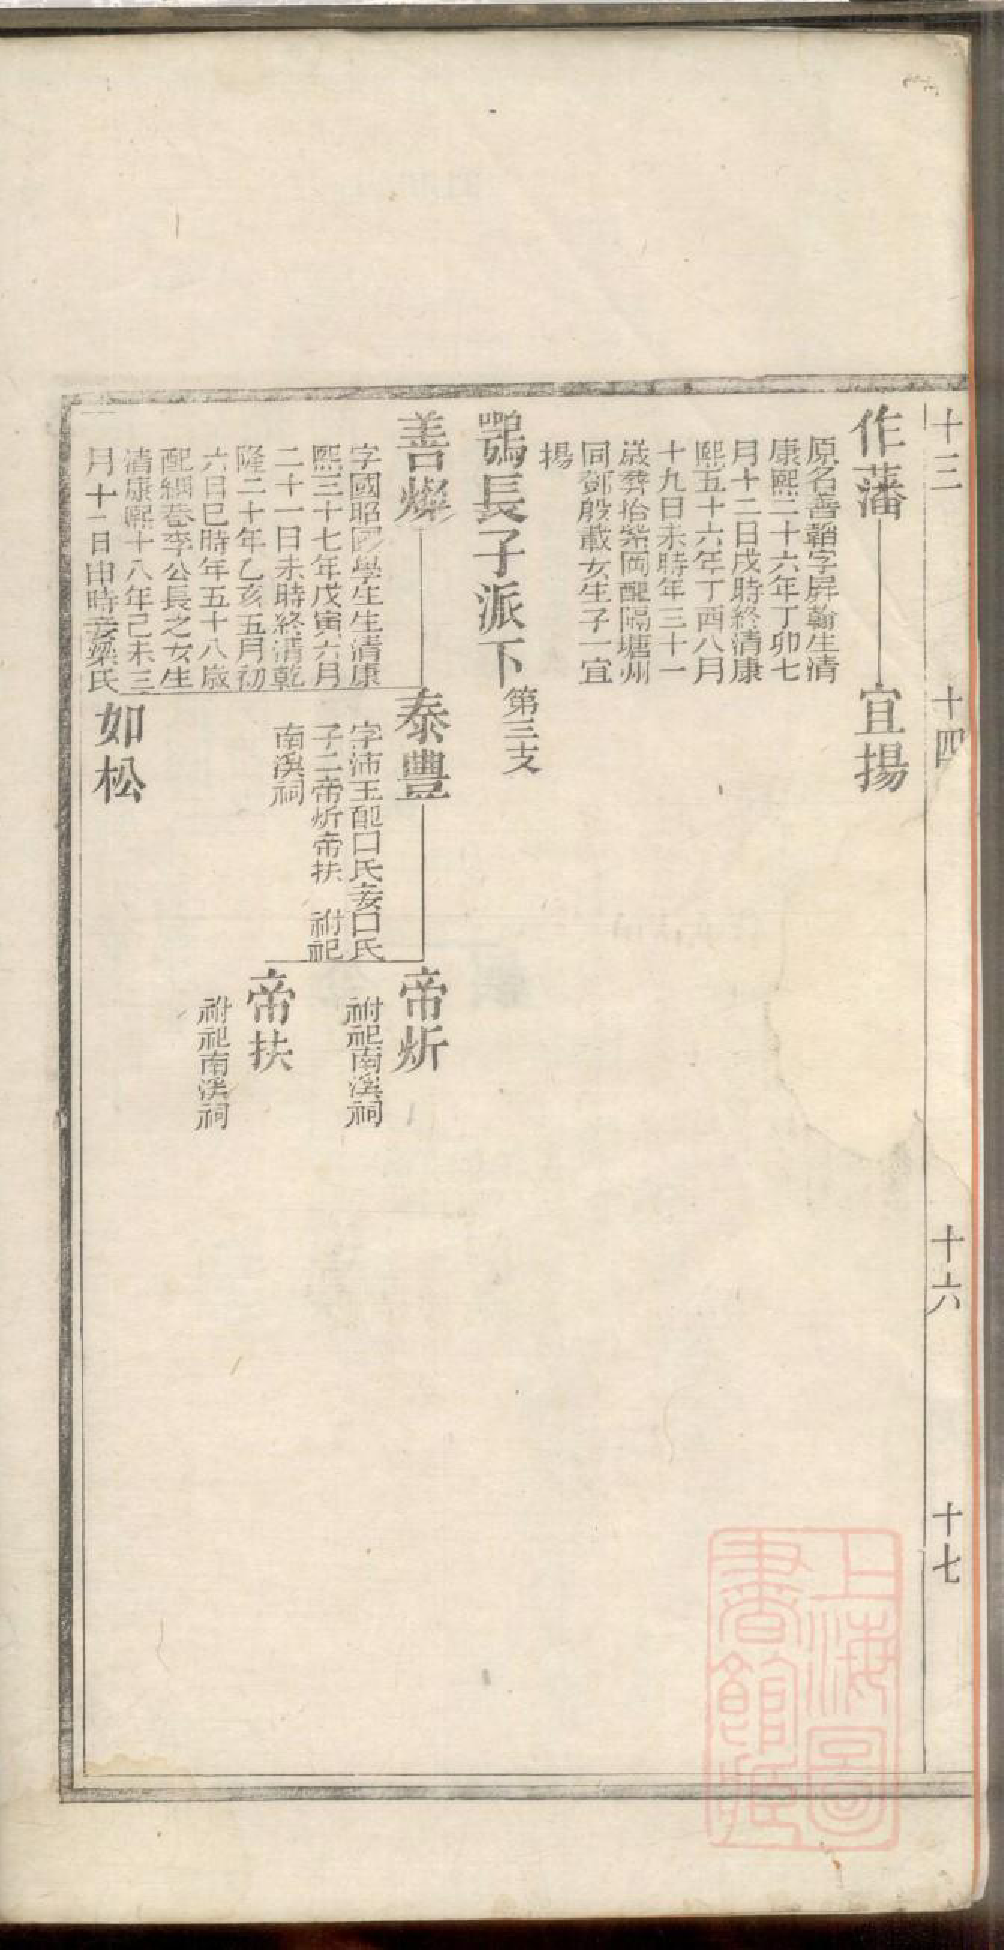 十三
十四
十六
十七
作藩
原名善韜字屏翰生清
康熙二十六年丁卯七
月十二日戌時終清康
熙五十六年丁酉八月
十九日未時年三十一
歲葬抬紫岡配隔塘州
同鄧殷載女生子一宜
揚
宜揚
鶚長子派下第三支
善燦
字國昭國學生生清康
熙三十七年戊寅六月
二十一日未時終清乾
隆二十年乙亥五月初
六日巳時年五十八歲
配綢巷李公長之女生
清康熙十八年己未三
月十一日申時妾梁氏
泰豐
字沛王配口氏妾口氏
子二帝炘帝扶 祔祀
南溪祠
帝炘
祔祀南溪祠
帝扶
祔祀南溪祠
如松
上海圖
書館藏